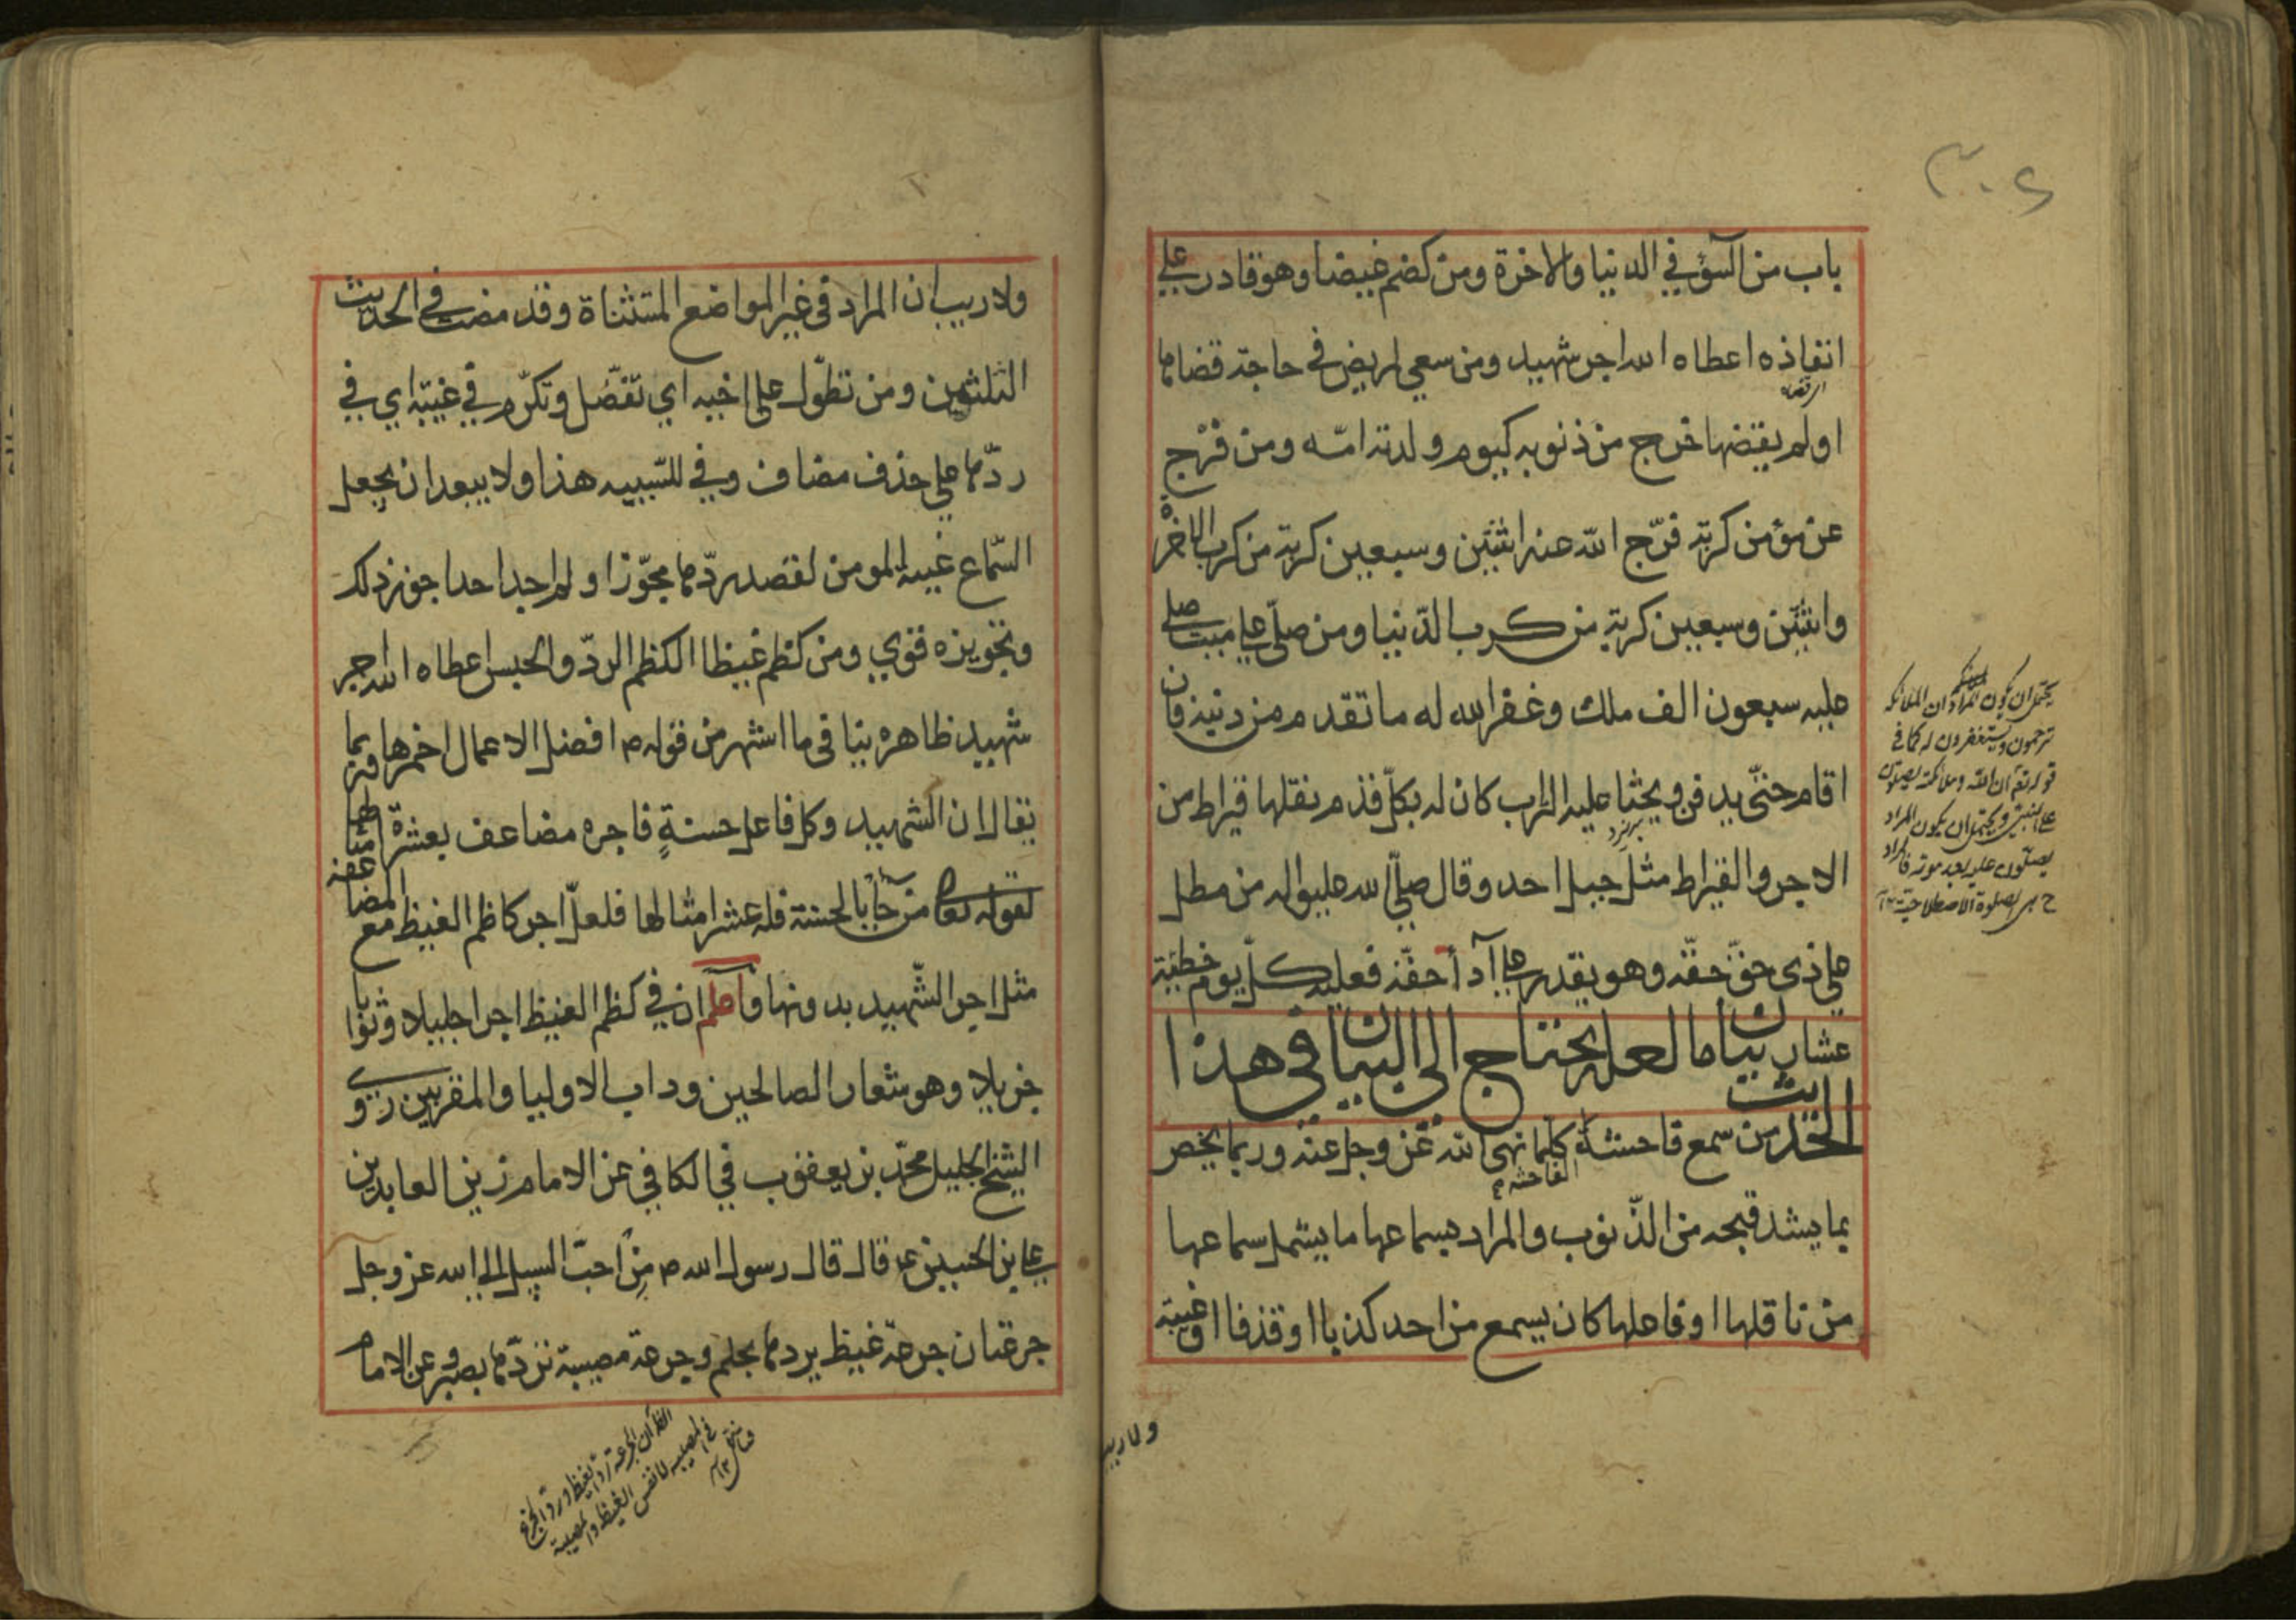 ٣٠٤
باب من السؤ في الدنيا والاخرة ومن كضم غيضا وهو قادر على
انفاذه اعطاه الله اجر شهيد ومن سعي لمريض في حاجة قضاها
او لم يقضها خرج من ذنوبه كيوم ولدته امّه ومن فرّج
عن مؤمن كربة فرّج الله عنه اثنتين وسبعين كربة من كرب الاخرة
واثنتين وسبعين كربة من كرب الدّنيا ومن صلّى على ميت صلى
عليه سبعون الف ملك وغفر الله له ما تقدم من ذنبه فان
اقام حتّى يدفن ويحثا عليه التراب كان له بكلّ قدم نقلها قيراط من
الاجر والقيراط مثل جبل احد وقال صلّى الله عليه واله من مطل
على ذي حقّ حقّه وهو يقدر على آدأ حقّه فعليه كلّ يوم خطيئة
عشار بيان ما لعله يحتاج الى البيان في هذا
الحديث من سمع فاحشة كلما نهى الله عزّ وجل عنه وربما يخص
الفاحشة
بما يشد قبحه من الذّنوب والمراد بسماعها ما يشمل سماعها
من ناقلها او فاعلها كان يسمع من احد كذبا او قذفا او غيبة
يحتمل ان يكون المراد ان الملائكة
يترحمون ويستغفرون له كما في
قوله تعم ان الله وملائكته يصلون
على النبي ويحتمل ان يكون المراد
يصلّون عليه بعد موته فالمراد
ح هي الصلوة الاصطلاحية ١٢
ولا ريب
ولا ريب ان المراد في غير المواضع المستثناة وقد مضت في الحديث
الثلثين ومن تطوّل على اخيه اي تفضّل وتكرّم في غيبة اي في
ردّها على حذف مضاف وفي للسّببيه هذا ولا يبعد ان يجعل
السّماع غيبة المومن لقصد ردّها مجوّزا ولم اجد احدا جوز ذلك
وتجويزه قوي ومن كظم غيظا الكظم الردّ والحبس اعطاه الله اجر
شهيد ظاهره ينافي ما اشتهر من قوله ص افضل الاعمال احمزها وربما
يقال ان الشهيد وكل فاعل حسنةٍ فاجره مضاعف بعشرة امثالها
لقوله تعالى من جآءَ بالحسنة فله عشر امثالها فلعلّ اجر كاظم الغيظ مع المضاعفة
مثل اجر الشّهيد بدونها واعلم ان في كظم الغيظ اجرا جليلا وثوابا
جزيلا وهو شعار الصالحين وداب الاوليا والمقربين روى
الشيخ الجليل محمّد بن يعقوب في الكافي عن الامام زين العابدين
علي بن الحسين ع قال قال رسول الله ص مِنْ احبّ السبيل الى الله عز وجل
جرعتان جرعة غيظ يردها بحلم وجرعة مصيبة تردّها بصبر وعن الامام
الظ ان الجرعة ردّ الغيظ وردّ الجزع
في المصيبة لا نفس الغيظ والمصيبة
فتأمل ١٢